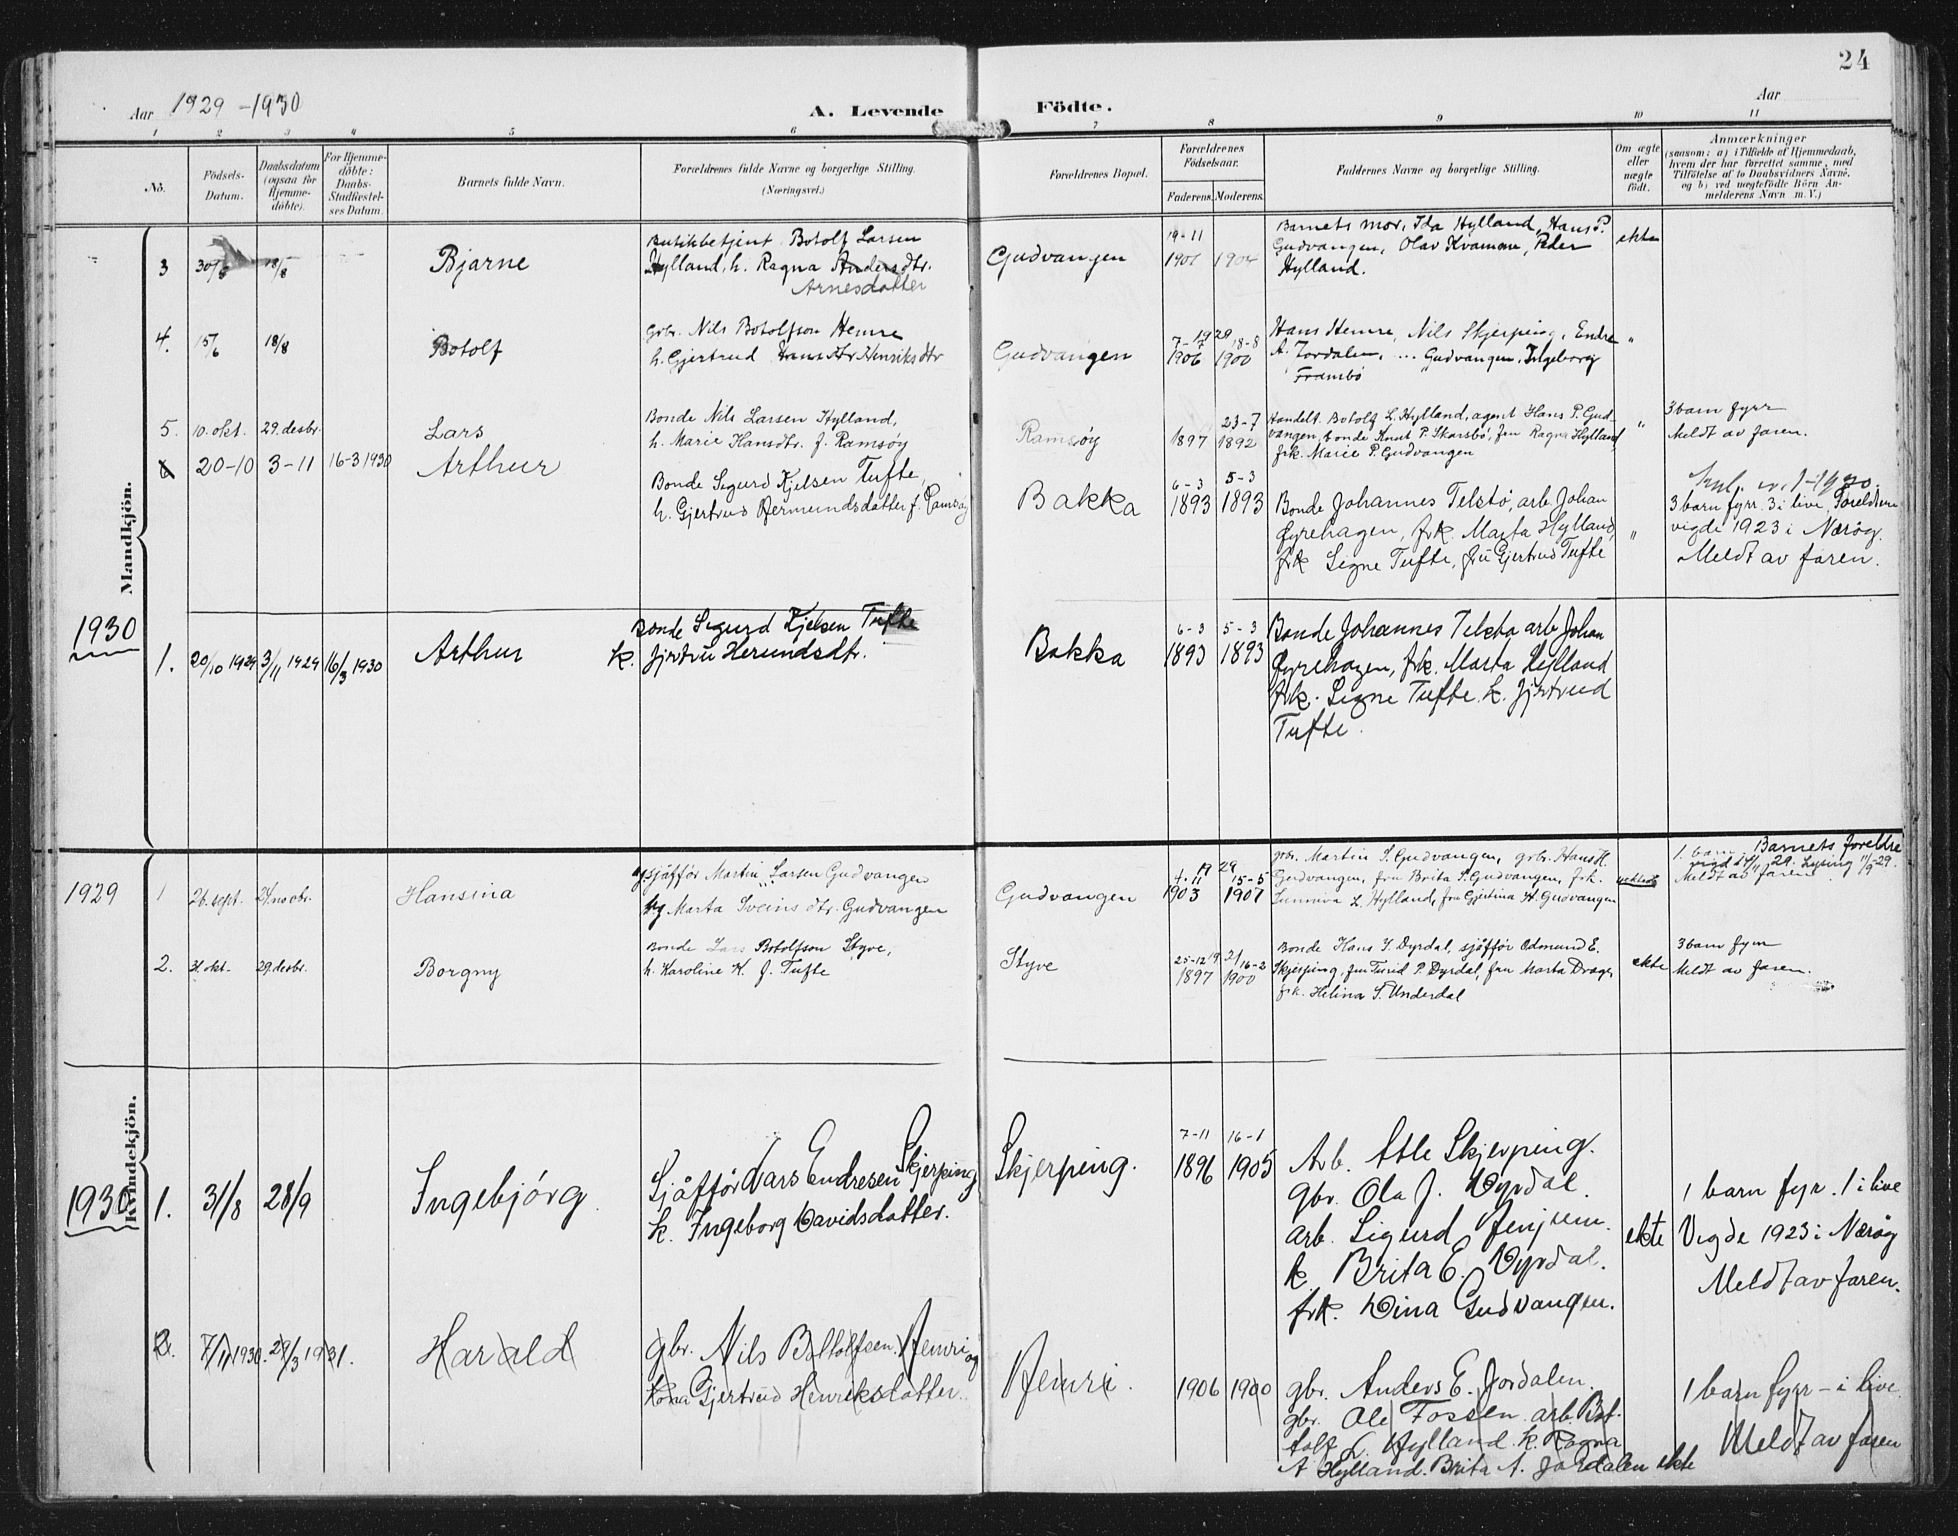 24
Aar 1929-1930
A. Levende Födte.
Aar
1 2 3 4 5 6 7 8 9 10 11
No.
Födsels-Datum.
Daabsdatum (ogsaa for Hjemme-döbte).
For Hjemme-döbte: Daabs-Stadfæstel-ses Datum.
Barnets fulde Navn.
Forældrenes fulde Navne og borgerlige Stilling.
(Næringsvei.)
Forældrenes Bopæl.
Forældrenes Födselsaar.
Faderens. Moderens.
Faddernes Navne og borgerlige Stilling.
Om ægte eller uægte födt.
Anmærkninger
(saasom: a) i Tilfælde af Hjemmedaab,
hvem der har forrettet samme, med
Tilföielse af to Daabsvidners Navne,
og b) ved uægtefödte Börn An-
melderens Navn m. V.)
Mandkjön.
3 30/6 18/8 Bjarne
Butikbetjent Botolf Larsen
Hylland, h. Ragna Andersdtr.
Arnesdatter
Gudvangen
19-11
1901 1904
Barnets mor, Ida Hylland, Hans P.
Gudvangen, Olav Kvamme, Peder
Hylland.
ekte
4. 15/6 18/8 Botolf
Gbr. Nils Botolfson Hemre
h. Gjertrud Henriksdtr
Gudvangen
19 29
7-7 18-8
1906 1900
Hans Hemre, Nils Skjerping, Endre
A. Jordalen, ... Gudvangen, Ingeborg
Frambø
"
5. 10. okt. 29. desbr. Lars
Bonde Nils Larsen Hylland,
h. Marie Hansdtr. f. Ramsøy
Ramsøy
23-7
1897 1892
Handelt. Botolf L. Hylland, agent Hans P. Gud-
vangen, bonde Knut P. Skarsbø, fru Ragna Hylland,
frk. Marie P. Gudvangen
"
3 barn fyrr
Meldt av faren.
6 20-10 3-11 16-3 1930 Arthur
Bonde Sigurd Kjelsen Tufte,
h. Gjertrud Hermundsdatter f. Ramsøy
Bakka
6-3 5-3
1893 1893
Bonde Johannes Telstø, arb. Johan
Fyrehagen, frk. Marta Hylland,
frk Signe Tufte, fru Gjertrud Tufte
"
3 barn fyrr 3 i live. Foreldrene
vigde 1923 i Nærøy.
Meldt av faren.
1930
1. 20/10 1929 3/11 1929 16/3 1930 Arthur
Bonde Sigurd Kjelsen Tufte
k. Gjertru Hermundsdtr.
Bakka
6-3 5-3
1893 1893
Bonde Johannes Telstø arb Johan
Fyrehagen, frk. Marta Hylland
frk. Signe Tufte k. Gjertrud
Tufte.
Kvindekjön.
1929
1 26. sept. 24. novbr. Hansina
Sjåffør Martin Larsen Gudvangen
og Marta Sveinsdtr. Gudvangen
Gudvangen
19 29
4-11 15-5
1903 1907
gbr. Martin S. Gudvangen, grbr. Hans H.
Gudvangen, fru Brita S. Gudvangen, frk.
Sunniva L. Hylland, fru Gjertina H. Gudvangen
1. barn. Barnets foreldre
vigd 24/11 29. Lysing 11/9-29.
Meldt av faren.
2. 31. okt. 29. desbr. Borgny
Bonde Lars Botolfson Styve,
h. Karoline K. f. Tufte
Styve
25-12 16-2
1897 1900
Bonde Hans S. Dyrdal, sjåffør Odmund E.
Skjerping, fru Turid P. Dyrdal, fru Marta Drage,
frk. Helina S. Underdal
ekte
3 barn fyrr
Meldt av faren.
1930
1. 31/8 28/9 Ingebjörg
Sjåffør Lars Endresen Skjerping
k. Ingeborg Davidsdatter.
Skjerping.
7-11 16-1
1896 1905
Arb. Atle Skjerping.
gbr. Ola J. Dyrdal.
arb. Sigurd
k Brita E. Dyrdal.
frk. Dina Gudvangen.
ekte
1 barn fyr. 1 i live
Vigde 1923 i Nærøy
Meldt av faren.
2. 7/11 1930. 29/3 1931. Harald
gbr. Nils Bottolfsen Hemri og
kona Gjertrud Henriksdatter.
Hemri.
1906 1900
gbr. Anders E. Jordalen.
gbr. Ole Fossen. arb. Bot-
tolf L. Hylland. k. Ragna
A Hylland. Brita A. Jordalen ekte
1 barn fyrr – i live.
Meldt av faren